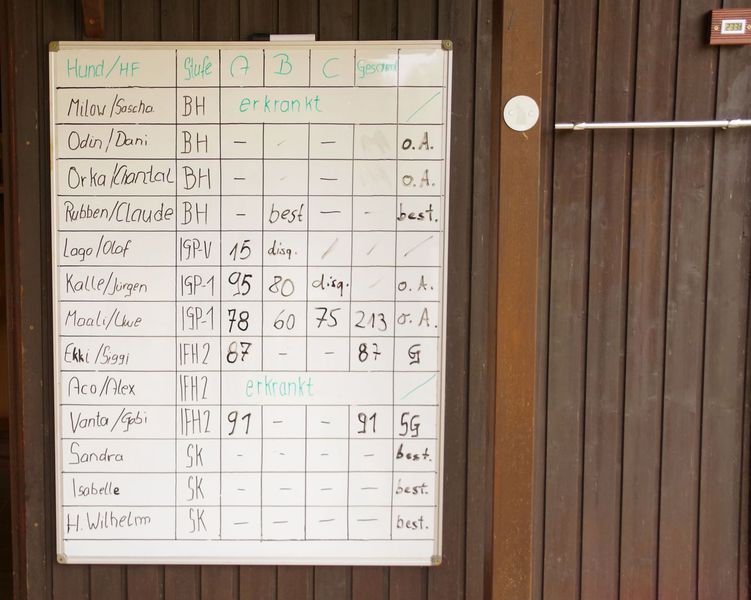 Hund/HF Stufe A B C Gesamt
Milow/Sascha BH erkrankt /
Odin/Dani BH - - - o.A.
Orka/Chantal BH - - - o.A.
Rubben/Claude BH - best - - best.
Lago/Olaf IGP-V 15 disq. / / /
Kalle/Jürgen IGP-1 95 80 disq. - o.A.
Maali/Uwe IGP-1 78 60 75 213 o.A.
Ekki/Siggi IFH2 87 - - 87 G
Aco/Alex IFH2 erkrankt /
Vanta/Gabi IFH2 91 - - 91 SG
Sandra SK - - - - best.
Isabelle SK - - - - best.
H.Wilhelm SK - - - - best.